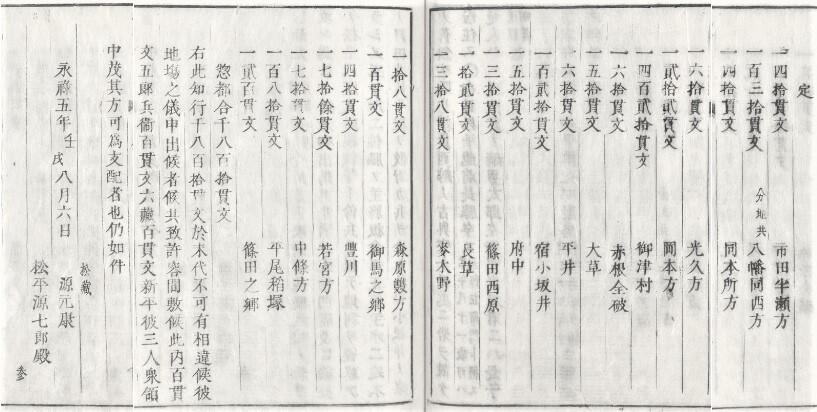 定
一四拾貫文 市田半瀬方
一百三拾貫文 分地共 八幡同西方
一四拾貫文 同本所方
一六拾貫文 光久方
一貳拾貳貫文 同本方
一四百貳拾貫文 御津村
一六拾貫文 赤根全破
一五拾貫文 大草
一六拾貫文 平井
一百貳拾貫文 宿小坂井
一五拾貫文 府中
一三拾貫文 篠田西原
一拾貳貫文 長草
一三拾八貫文 麥木野
一拾八貫文 森原數方
一百貫文 御馬之郷
一四拾貫文 豐川
一七拾餘貫文 若宮方
一七拾貫文 中條方
一百八拾貫文 平尾稻塚
一貳百貫文 篠田之郷
惣都合千八百拾貫文
右此知行千八百拾貫文於末代不可有相違候彼
地場之儀申出候者候共致許容間敷候此内百貫
文五郎兵衞百貫文六藏百貫文新平彼三人衆領
中茂其方可爲支配者也仍如件
永祿五年壬戌八月六日
松藏
源元康
松平源七郎殿
参